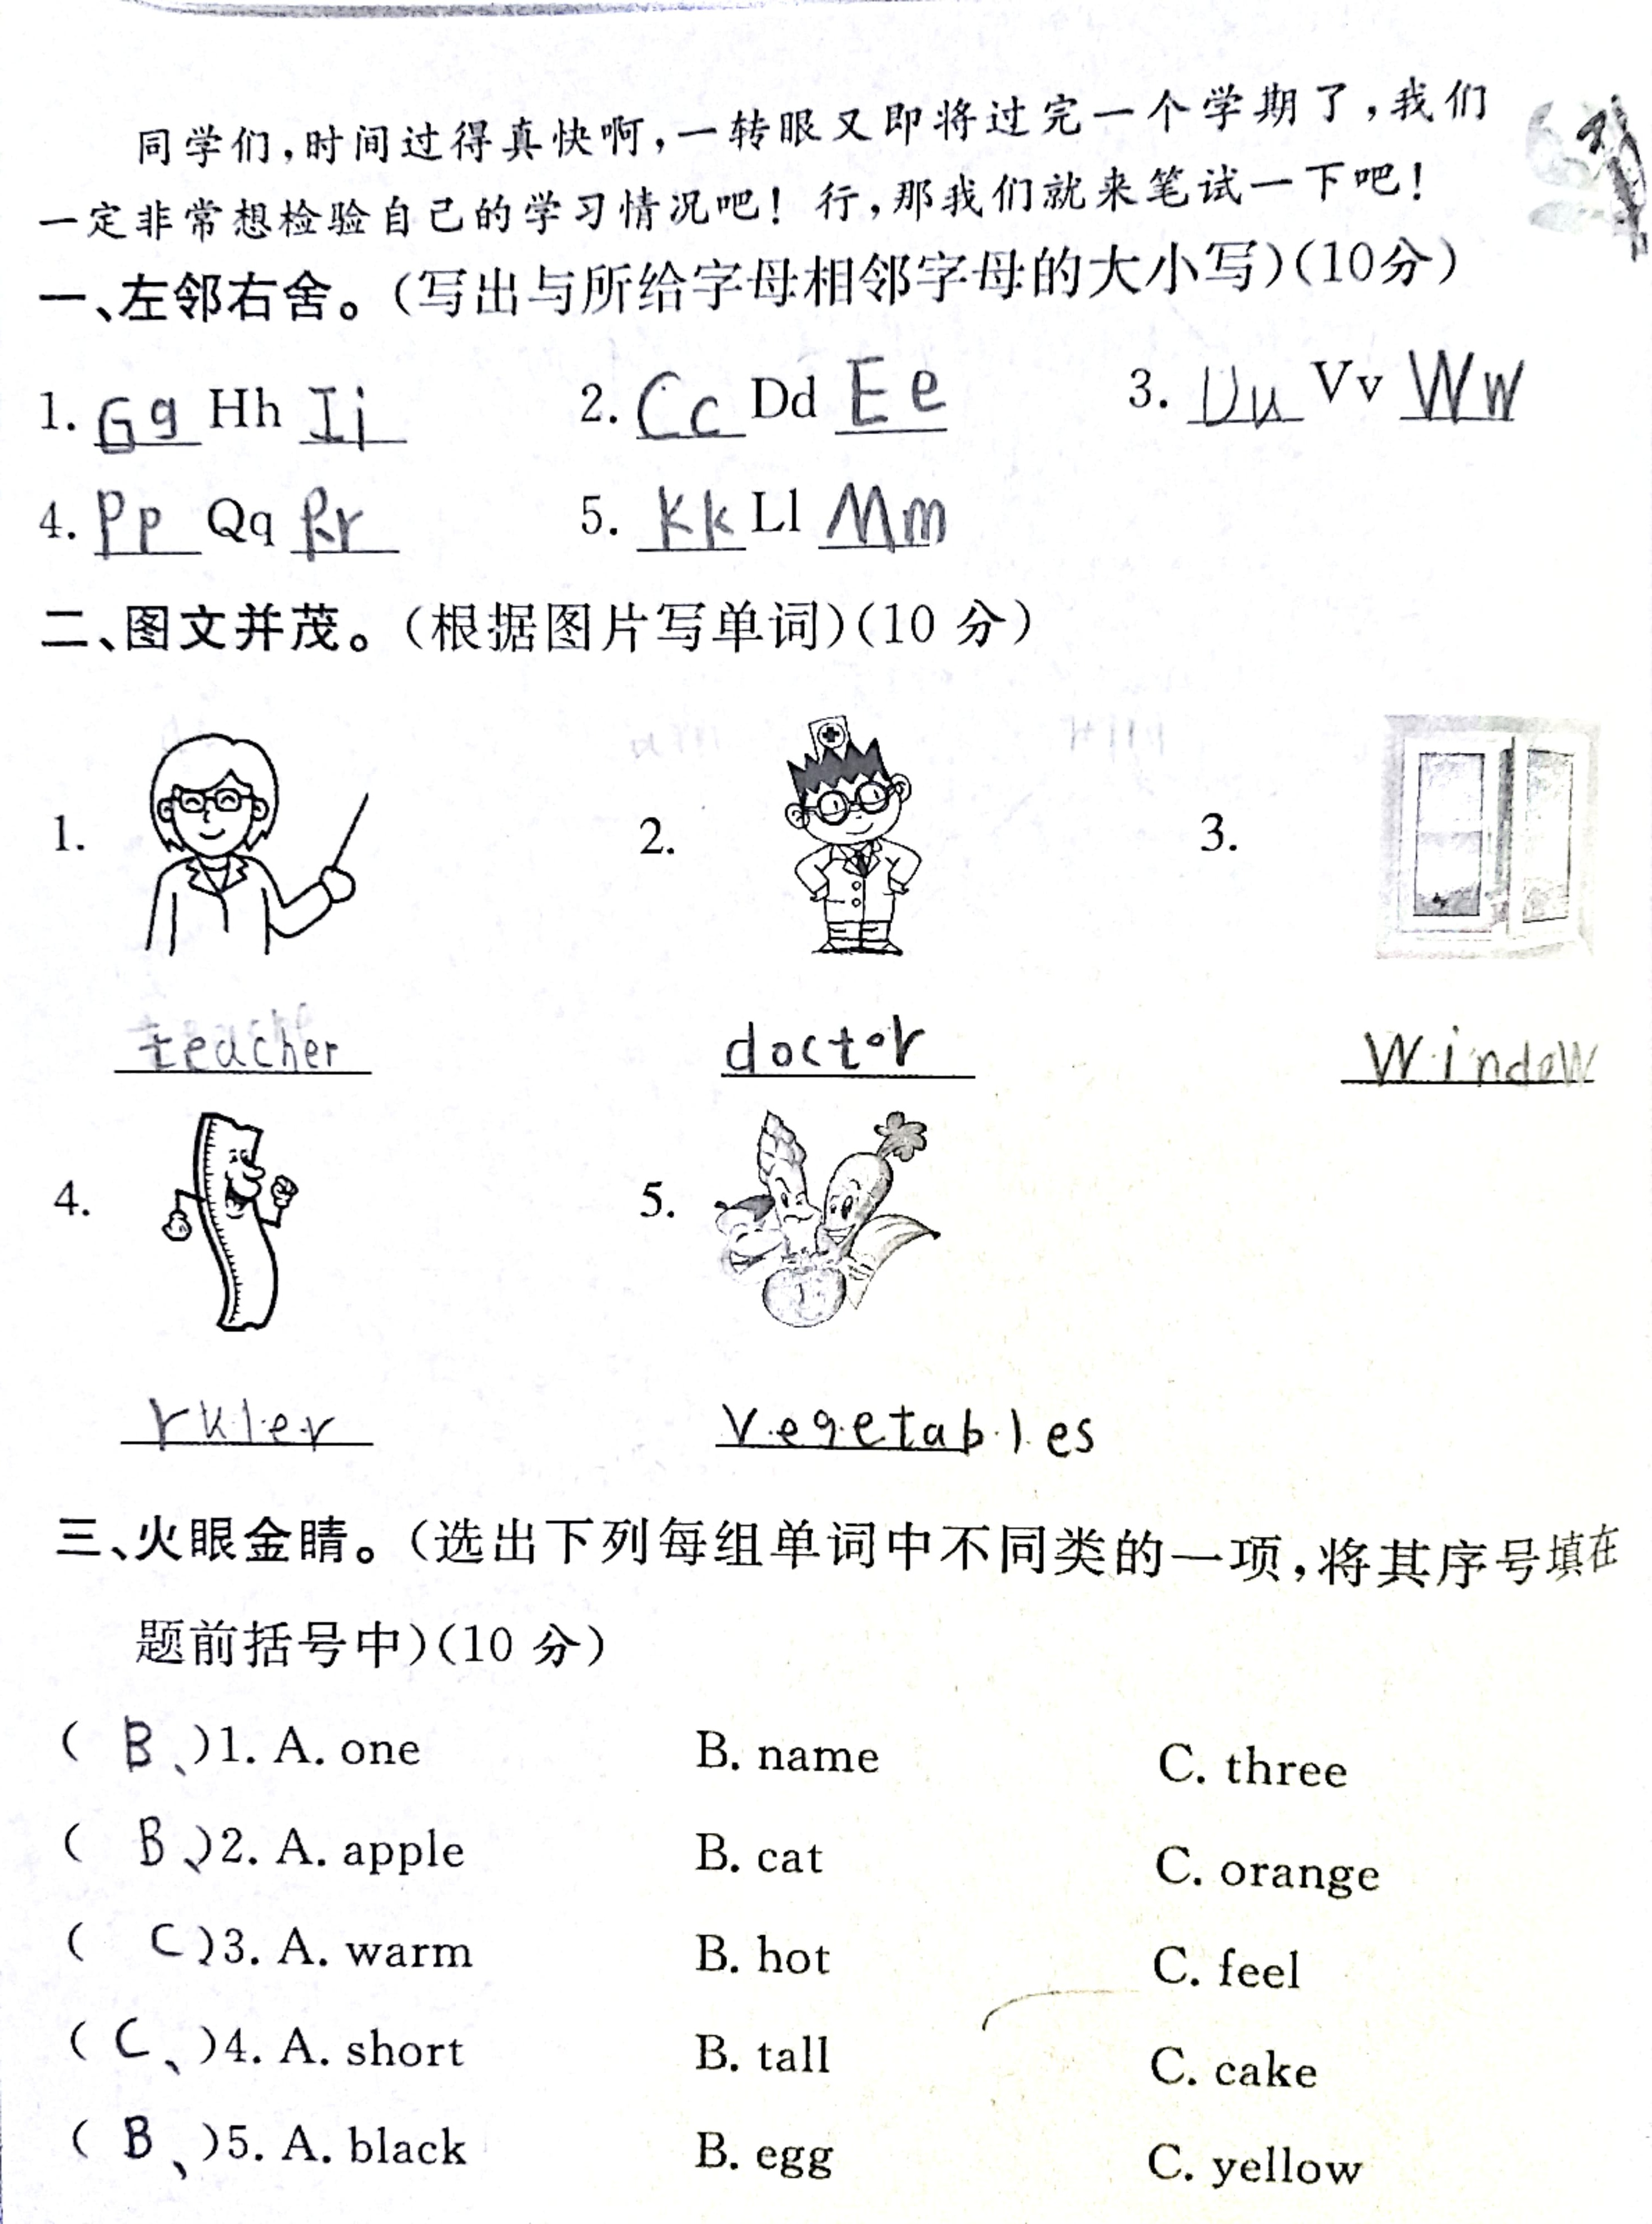 同学们,时间过得真快啊,一转眼又即将过完一个学期了,我们
一定非常想检验自己的学习情况吧! 行,那我们就来笔试一下吧!
一、左邻右舍。(写出与所给字母相邻字母的大小写)(10分)
1. Gg Hh Ii 2. Cc Dd Ee 3. Uu Vv Ww
4. Pp Qq Rr 5. Kk Ll Mm
二、图文并茂。(根据图片写单词)(10 分)
1. 2. 3.
teacher doctor window
4. 5.
ruler vegetables
三、火眼金睛。(选出下列每组单词中不同类的一项,将其序号填在
题前括号中)(10 分)
( B、)1. A. one B. name C. three
( B、)2. A. apple B. cat C. orange
( C )3. A. warm B. hot C. feel
( C、)4. A. short B. tall C. cake
( B、)5. A. black B. egg C. yellow